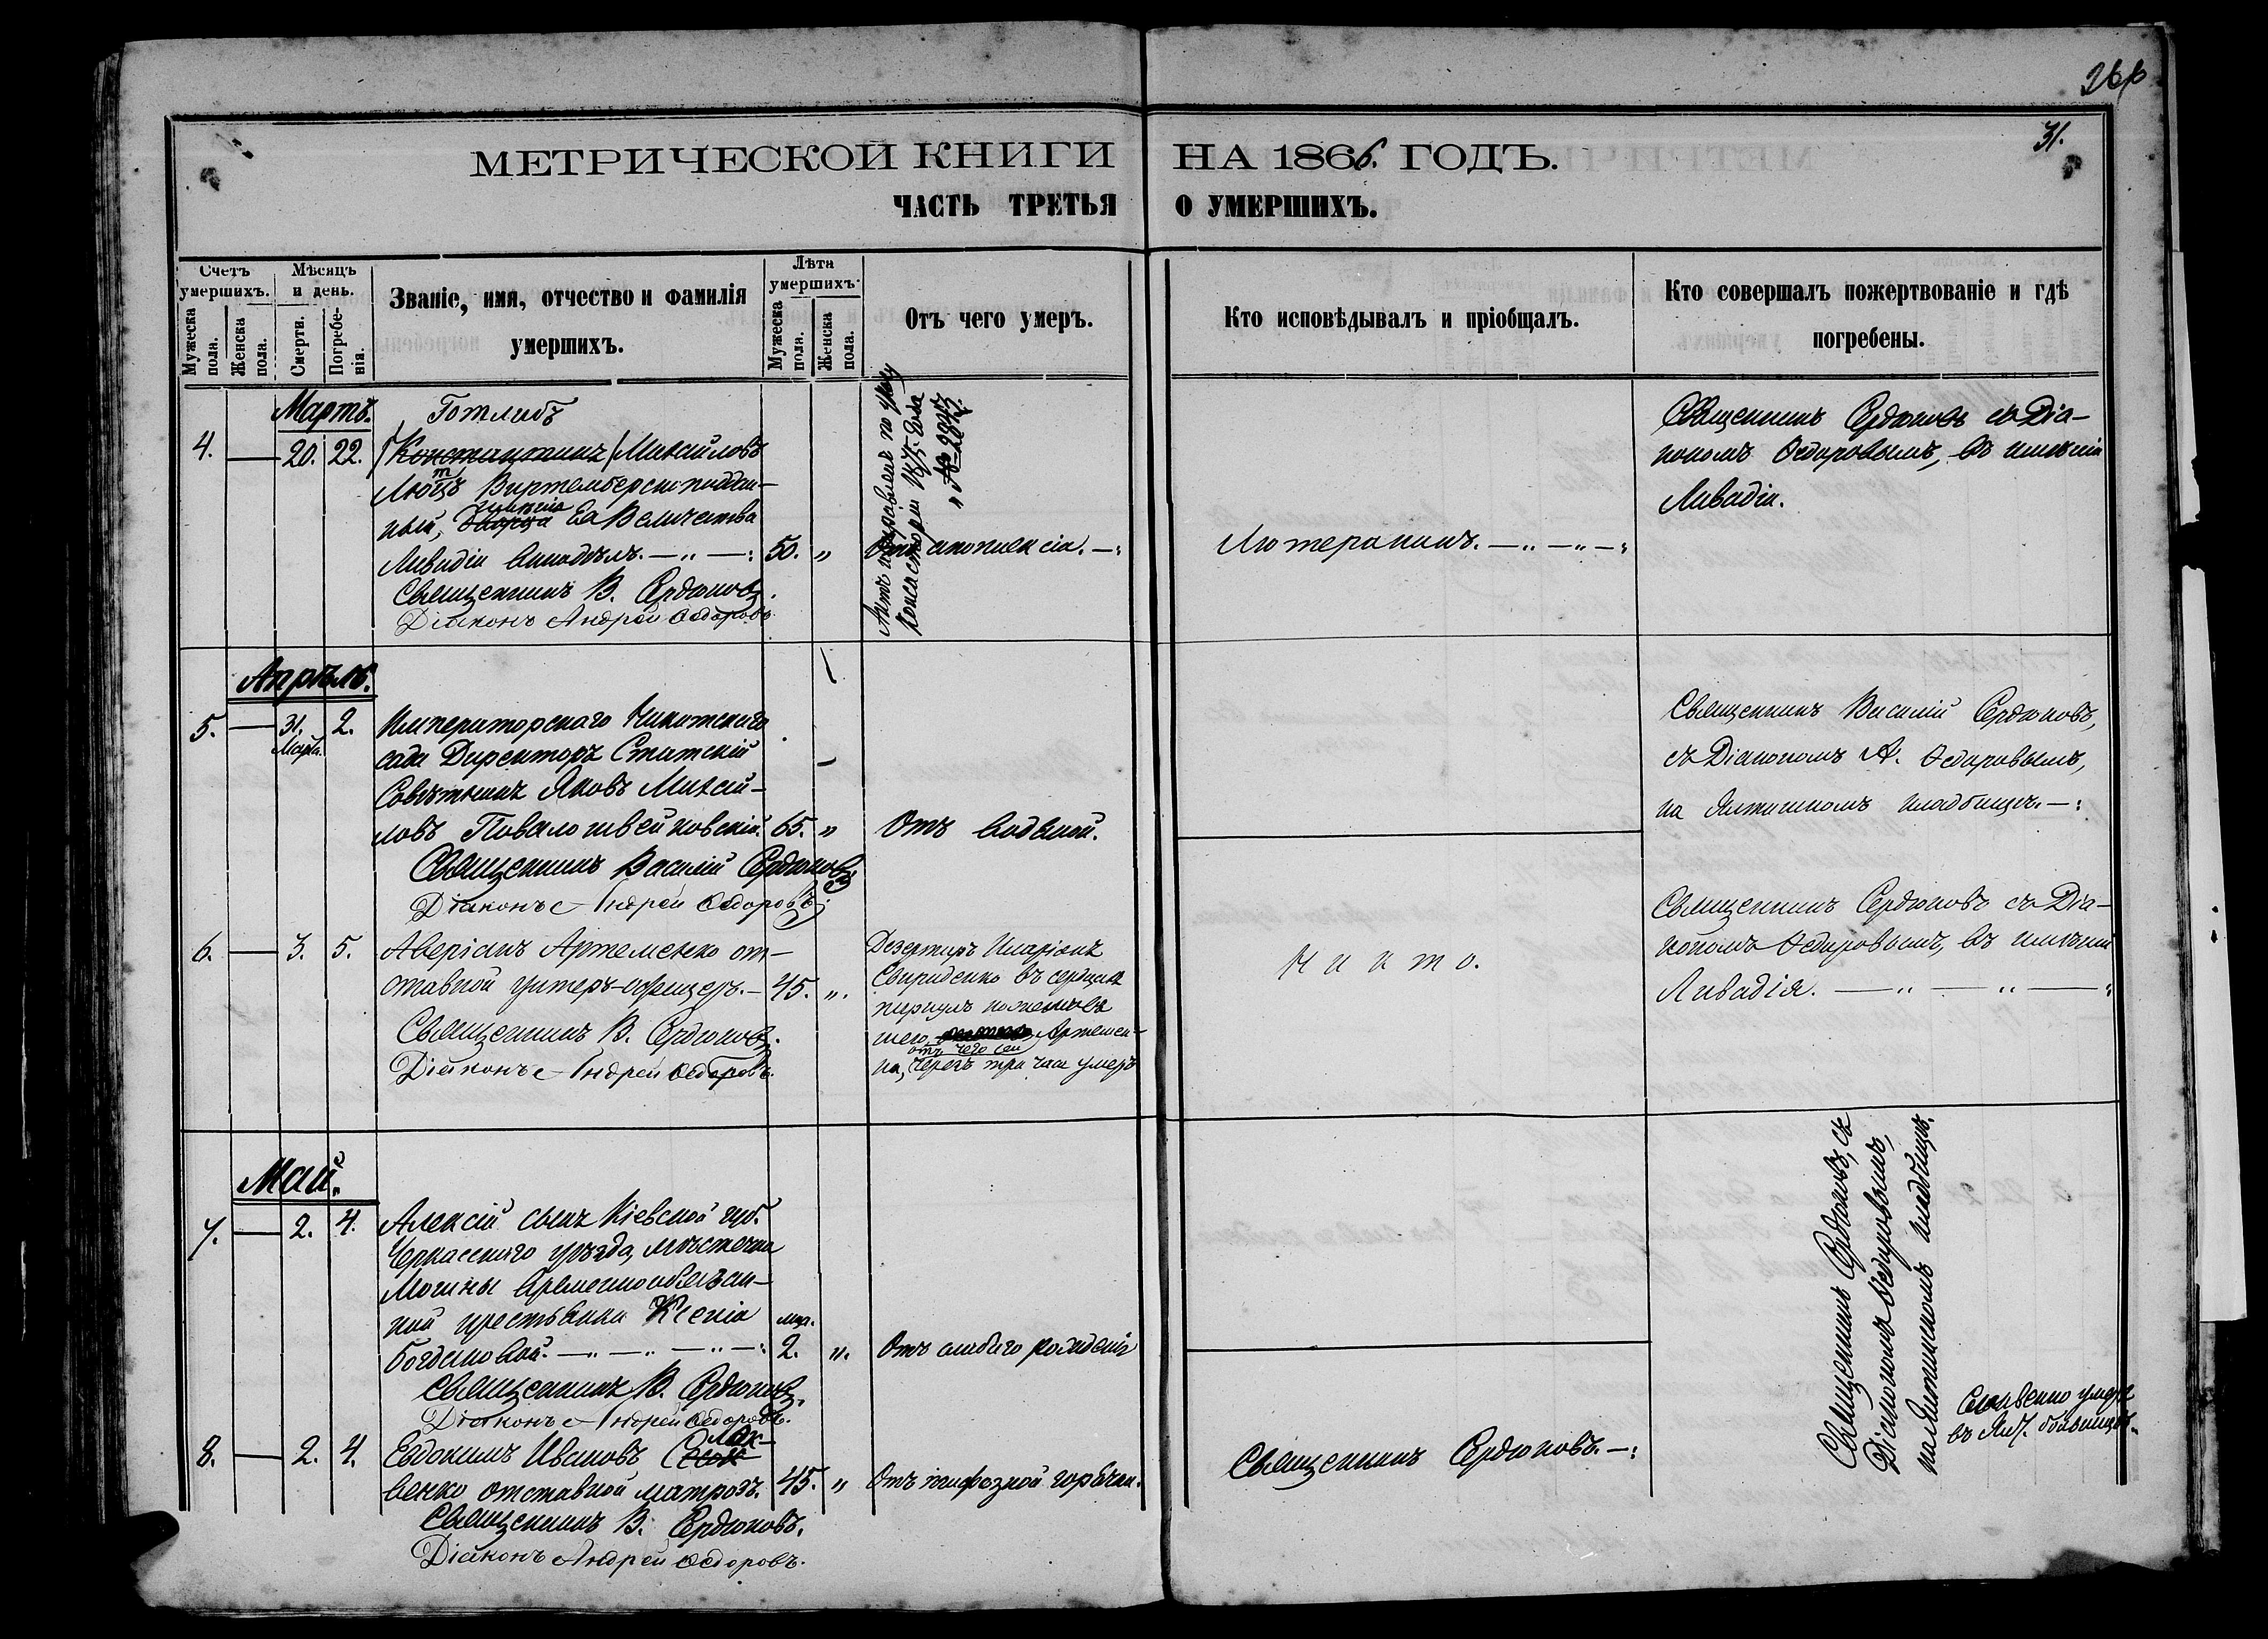 31.
МЕТРИЧЕСКОЙ КНИГИ НА 1866. ГОДЪ.
ЧАСТЬ ТРЕТЬЯ О УМЕРШИХЪ.
Счетъ умершихъ.
Мужеска пола.
Женска пола.
Мѣсяцъ и день.
Смерти.
Погребенія.
Званіе, имя, отчество и фамилія
умершихъ.
Лѣта умершихъ.
Мужеска пола.
Женска пола.
Отъ чего умеръ.
Кто исповѣдывалъ и пріобщалъ.
Кто совершалъ пожертвованіе и гдѣ
погребены.
Мартъ.
4. — 20. 22.
Готлибъ
(Константинъ) Михайловъ
Виртембергскій поддан-
ный, имѣнія Ея Величества
Ливадіи Винодѣлъ. —„— : 50. „
Священникъ В. Сердюковъ.
Діаконъ Андрей Ѳедоровъ
Отъ апоплексіи. — :
Актъ исправленъ по указу
Консисторіи 1875. года
Лютеранинъ. —„—„— :
Священникъ Сердюковъ съ Діа-
кономъ Ѳедоровымъ, въ имѣніи
Ливадіи.
Апрѣль.
5. — 31. Марта. 2.
Императорскаго Никитскаго
сада Директоръ Статскій
Совѣтникъ Яковъ Михай-
ловъ Повалошвейковскій. 65. „
Священникъ Василій Сердюковъ.
Діаконъ Андрей Ѳедоровъ
Отъ водяной.
Священникъ Василій Сердюковъ,
съ Діакономъ А. Ѳедоровымъ,
на Ялтинскомъ кладбищѣ. — :
6. — 3. 5.
Аверіанъ Артеменко от-
ставной унтеръ-офицеръ. — 45. „.
Священникъ В. Сердюковъ.
Діаконъ Андрей Ѳедоровъ.
Дезертиръ Иларіонъ
Свириденко въ сердцахъ
пырнулъ ножемъ
Артемен-
отъ чего сей
ка, чрезъ три часа умеръ
Никто.
Священникъ Сердюковъ съ Діа-
кономъ Ѳедоровымъ, въ имѣніи
Ливадія. —„—„— :
Май.
7. — 2. 4.
Алексій сынъ Кіевской губ.
Черкасскаго уѣзда, мѣстечка
Мошны временнообязан-
ной крестьянки Ксенiи
Богдановой. —„—„—„— : 2. „.
Священникъ В. Сердюковъ.
Діаконъ Андрей Ѳедоровъ.
Отъ слабаго рожденія
Священникъ Сердюковъ, съ
Діакономъ Ѳедоровымъ,
на Ялтинскомъ кладбищѣ.
8. — 2. 4.
Евдокимъ Ивановъ
венко отставной матрозъ. 45. „
Священникъ В. Сердюковъ.
Діаконъ Андрей Ѳедоровъ.
Отъ тифозной горячки.
Священникъ Сердюковъ. — :
умеръ
въ Ял. больницѣ.